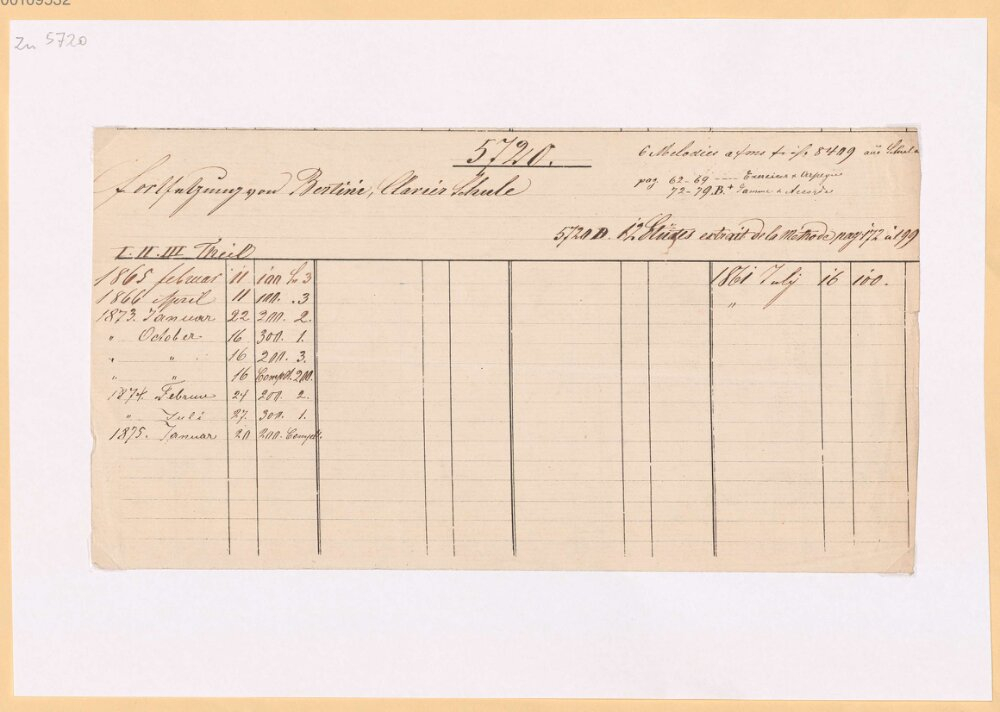 00109532
Zu 5720
5720.
6 Melodies a 4ms 8409 aus Schule
pag. 62-69 ---- Exercices & Arpeges
72-79. B. Gamme & Accordes
Fortsetzung von Bertini, Clavier Schule
5720 D. 12 Etudes extrait de la Méthode, pag 172 à 199
I. II. III Theil
1865 februar 11 100 3
1866 April 11 100. .3
1873. Januar 22 200. 2.
" October 16 300. 1.
" " 16 200. 3.
" " 16 Complt. 200.
1874. Februar 24 200. 2.
" Juli 27. 300. 1.
1875. Januar 20 200. Complt.
1861 July 16 100.
"